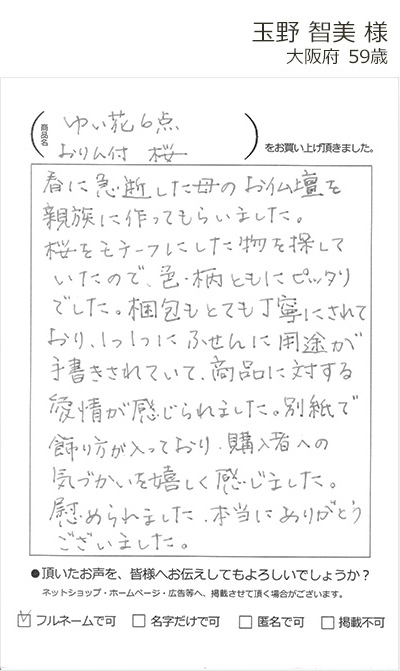 玉野 智美 様
大阪府 59歳
商品名
ゆい花6点
おりん付 桜
をお買い上げ頂きました。
春に急断した母のお仏壇を
親族に作ってもらいました。
桜をモチーフにした物を探して
いたので、色・柄ともにピッタリ
でした。梱包もとても丁寧にされて
おり、1つ1つにふせんに用途が
手書きされていて、商品に対する
愛情が感じられました。別紙で
飾り方が入っており、購入者への
気づかいを嬉しく感じました。
慰められました、本当にありがとう
ございました。
●頂いたお声を、皆様へお伝えしてもよろしいでしょうか?
ネットショップ・ホームページ・広告等へ、掲載させて頂く場合がございます。
☑フルネームで可 □名字だけで可 □匿名で可 □掲載不可